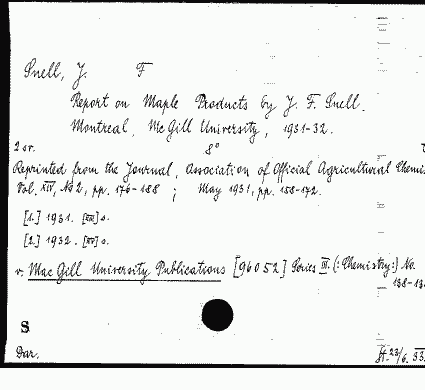 Snell, J. F
Report on Maple Products by J. F. Snell.
Montreal, Mc Gill University, 1931-32.
2 sv. 8°
Reprinted from the Journal, Association of Official Agricultural Chemis
Vol. XIV, No 2, pp. 176-188 ; May 1931, pp. 158-172.
[1.] 1931. [XII] s.
[2.] 1932. [XV] s.
v. Mac Gill University Publications [96052] Series III. (:Chemistry:) No.
138-13
S
Dar. 23/6. 33